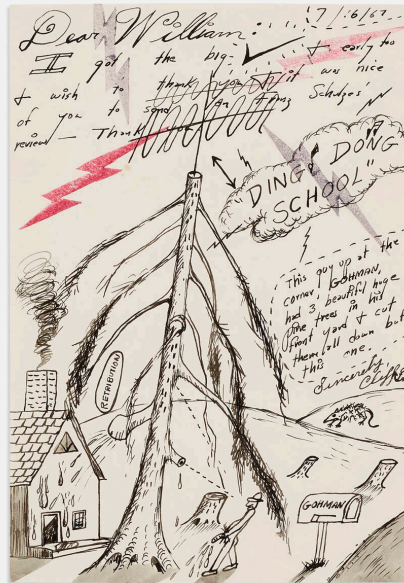 7/16/67
Dear William:
I got the big
& early to
I wish to thank you it was nice
of you to send an Schulzes'
review — Thank you
"DING DONG
SCHOOL"
This guy up at the
corner, GOHMAN,
had 3 beautiful huge
pine trees in his
front yard & cut
them all down but
this one.
Sincerely,
Cliff
RETRIBUTION
GOHMAN